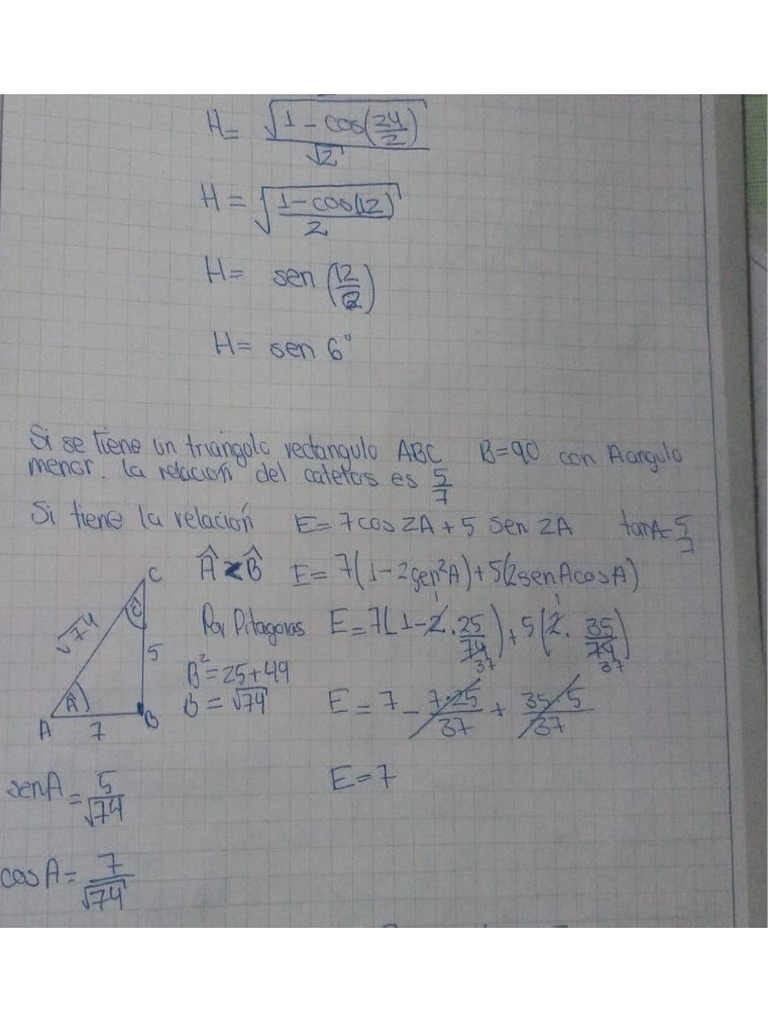 H = √(1 - cos(24/2)) / √2
H = √((1 - cos(12)) / 2)
H = sen (12/2)
H = sen 6°
Si se tiene un triángulo rectangulo ABC B=90 con A angulo
menor. la relación del catetos es 5/7
Si tiene la relación E = 7cos2A + 5 sen 2A tanA = 5/7
Â < B̂ E = 7(1 - 2sen²A) + 5(2senAcosA)
Por Pitagoras E = 7(1 - 2 · 25/74 37) + 5(2 · 35/74 37) 1 1
B² = 25 + 49
B = √74 E = 7 - 7·25/37 + 35·5/37
C
C
√74
5
A
A
7
B
senA = 5/√74 E = 7
cosA = 7/√74